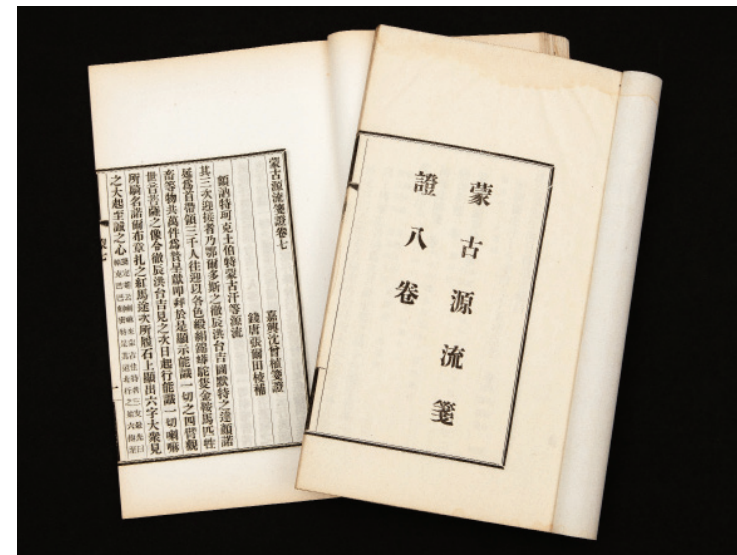 蒙古源流箋
證八卷
蒙古源流箋證卷七
嘉興沈曾植箋證
錢唐張爾田校補
額訥特珂克土伯特蒙古汗等源流
其三次迎接者乃鄂爾多斯之徹辰洪台吉圖默特之達顏諾
延爲首帶領三千人往迎以各色緞絹錦蟒駝隻金鞍馬匹牲
畜等物共萬件爲贄呈獻叩拜於是顯示能識一切之四臂觀
世音菩薩之像令徹辰洪台吉見之次日起行能識一切喇嘛
所騎名諾爾布章扎之紅馬途次所履石上顯出六字大衆見
之大起至誠之心